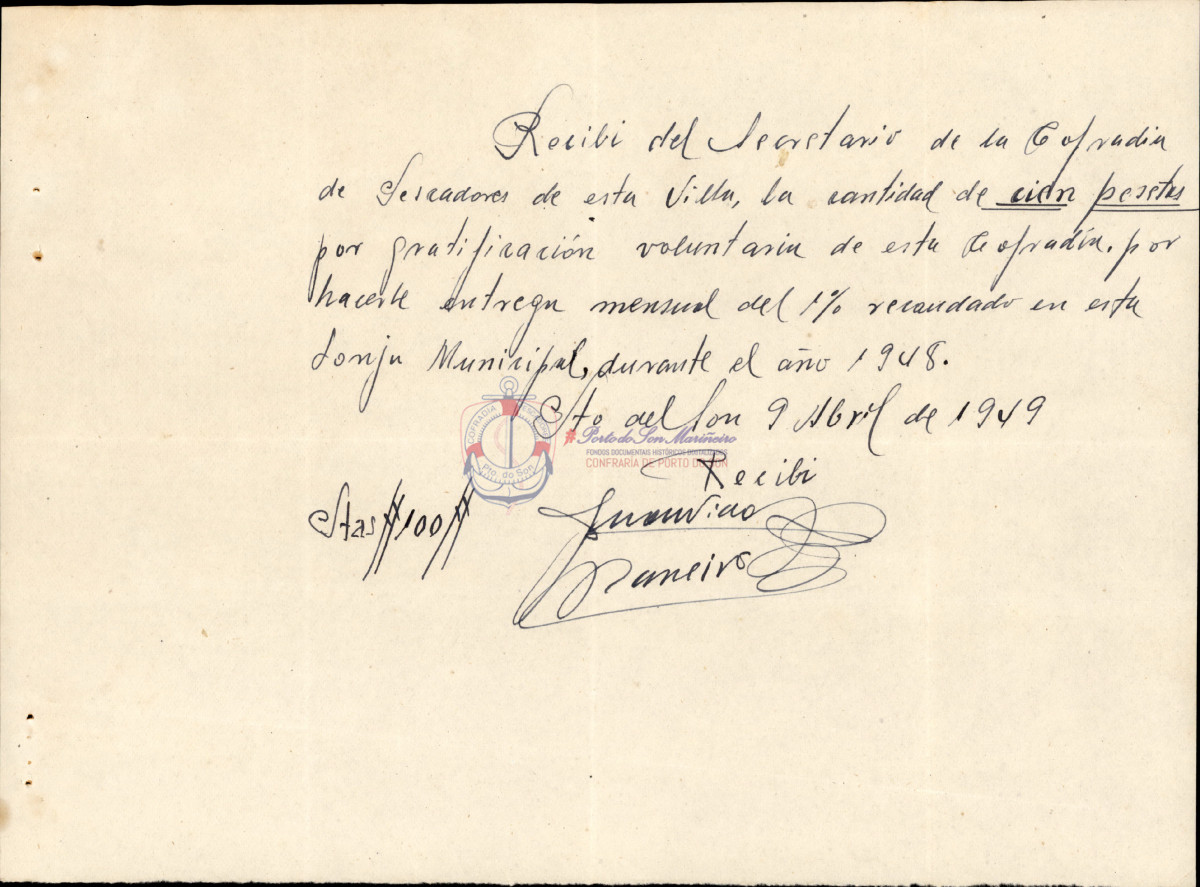 Recibi del Secretario de la Cofradia
de Pescadores de esta Villa, la cantidad de cien pesetas
por gratificación voluntaria de esta Cofradía, por
hacerle entrega mensual del 1% recaudado en esta
Lonja Municipal, durante el año 1948.
Pto del Son 9 Abril de 1949
Recibi
Ptas #100#
Juan
COFRADIA PESCADORES
Pto. do Son
#Porto do Son Mariñeiro
FONDOS DOCUMENTAIS HISTÓRICOS DIXITALIZADOS
CONFRARÍA DE PORTO DO SON